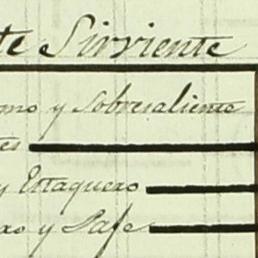 te Sirviente
mo y Sobresaliente
tes
y Estaquero
xo y Pafe